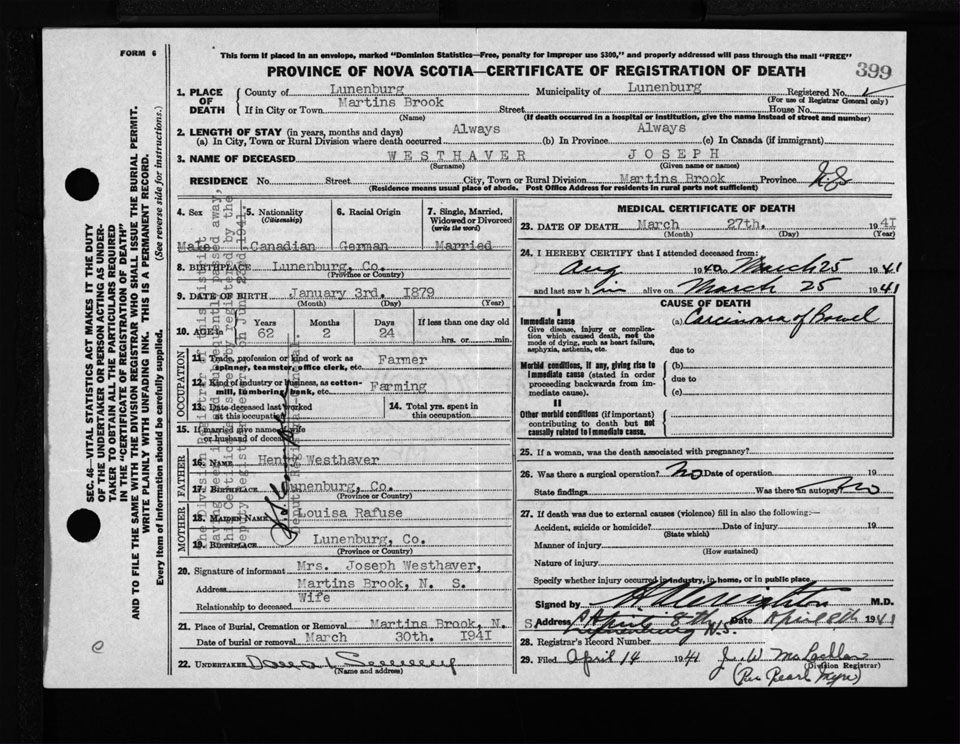 FORM 6
This form if placed in an envelope, marked "Dominion Statistics—Free, penalty for improper use $300," and properly addressed will pass through the mail "FREE"
PROVINCE OF NOVA SCOTIA—CERTIFICATE OF REGISTRATION OF DEATH
399
1. PLACE OF DEATH
County of Lunenburg Municipality of Lunenburg Registered No.
(For use of Registrar General only)
If in City or Town Martins Brook Street House No.
(Name) (If death occurred in a hospital or institution, give the name instead of street and number)
2. LENGTH OF STAY (in years, months and days)
(a) In City, Town or Rural Division where death occurred Always (b) In Province Always (c) In Canada (if immigrant)
3. NAME OF DECEASED WESTHAVER JOSEPH
(Surname) (Given name or names)
RESIDENCE No. Street City, Town or Rural Division Martins Brook Province N.S
(Residence means usual place of abode. Post Office Address for residents in rural parts not sufficient)
4. Sex Male
5. Nationality (Citizenship) Canadian
6. Racial Origin German
7. Single, Married, Widowed or Divorced (write the word) Married
8. BIRTHPLACE Lunenburg, Co.
(Province or Country)
9. DATE OF BIRTH January 3rd. 1879
(Month) (Day) (Year)
10. AGE in Years 62 Months 2 Days 24 If less than one day old
hrs. or min.
OCCUPATION
11. Trade, profession or kind of work as spinner, teamster, office clerk, etc. Farmer
12. Kind of industry or business, as cotton-mill, lumbering, bank, etc. Farming
13. Date deceased last worked at this occupation
14. Total yrs. spent in this occupation
15. If married give name of wife or husband of deceased
FATHER
16. Name Henry Westhaver
17. Birthplace Lunenburg, Co.
(Province or Country)
MOTHER
18. Maiden Name Louisa Rafuse
19. Birthplace Lunenburg, Co.
(Province or Country)
20. Signature of informant Mrs. Joseph Westhaver,
Address Martins Brook, N. S.
Relationship to deceased Wife
21. Place of Burial, Cremation or Removal Martins Brook, N. S.
Date of burial or removal March 30th. 1941
22. UNDERTAKER
(Name and address)
MEDICAL CERTIFICATE OF DEATH
23. DATE OF DEATH March 27th. 1941
(Month) (Day) (Year)
24. I HEREBY CERTIFY that I attended deceased from:
Aug 1940 to March 25 1941
and last saw him alive on March 25 1941
CAUSE OF DEATH
I
Immediate cause
Give disease, injury or complication which caused death, not the mode of dying, such as heart failure, asphyxia, asthenia, etc.
(a) Carcinoma of Bowel
due to
Morbid conditions, if any, giving rise to immediate cause (stated in order proceeding backwards from immediate cause).
(b)
due to
(c)
II
Other morbid conditions (if important) contributing to death but not causally related to immediate cause.
25. If a woman, was the death associated with pregnancy?
26. Was there a surgical operation? No Date of operation 19
State findings Was there an autopsy? No
27. If death was due to external causes (violence) fill in also the following:—
Accident, suicide or homicide? Date of injury 19
(State which)
Manner of injury
(How sustained)
Nature of injury
Specify whether injury occurred in industry, in home, or in public place
Signed by M.D.
Address April 8th Date April 8th 1941
Lunenburg N.S.
28. Registrar's Record Number
29. Filed April 14 1941 J. W. McLachlan
(Division Registrar)
(Per Pearl Myra)
SEC. 46—VITAL STATISTICS ACT MAKES IT THE DUTY
OF THE UNDERTAKER OR PERSON ACTING AS UNDERTAKER TO OBTAIN ALL THE PARTICULARS REQUIRED
IN THE "CERTIFICATE OF REGISTRATION OF DEATH"
AND TO FILE THE SAME WITH THE DIVISION REGISTRAR WHO SHALL ISSUE THE BURIAL PERMIT.
WRITE PLAINLY WITH UNFADING INK. THIS IS A PERMANENT RECORD.
Every item of information should be carefully supplied. (See reverse side for instructions.)